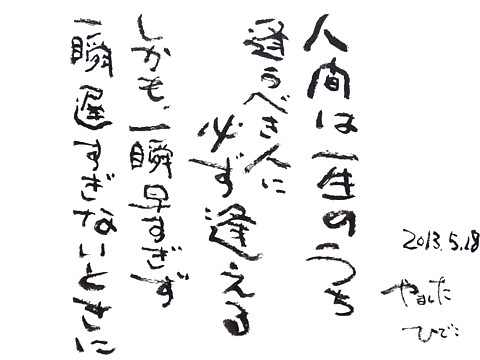 人間は一生のうち
逢うべき人に
必ず逢える
しかも、一瞬早すぎず
一瞬遅すぎないときに
2013.5.18
やました
ひでこ